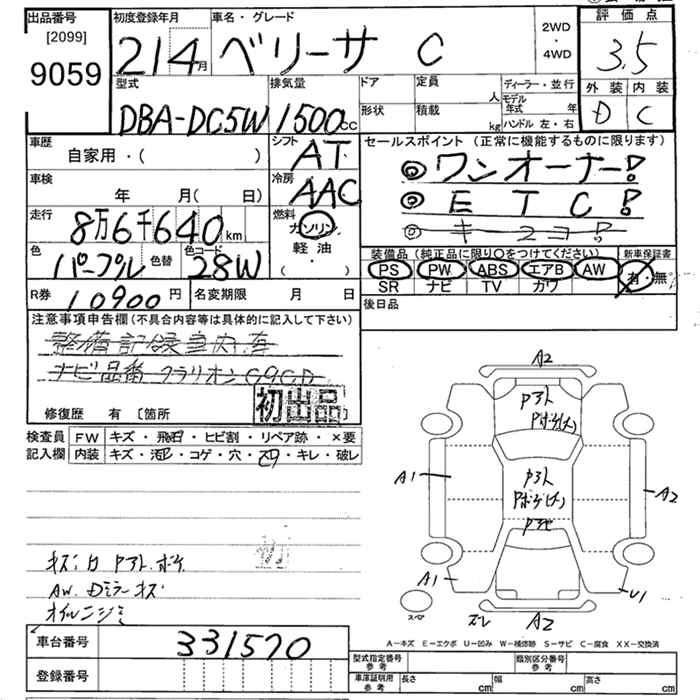 出品番号
[2099]
9059
初度登録年月
21 4月
車名・グレード
ベリーサ C
2WD
・
4WD
評価点
3.5
外装 内装
D C
型式
DBA-DC5W
排気量
1500cc
ドア
形状
定員
人
積載
kg
ディーラー・並行
モデル年式 年
ハンドル 左・右
車歴
自家用・( )
シフト
AT
車検
年 月( 日)
冷房
AAC
走行
8万6千640km
燃料
ガソリン
軽油
( ・ )
色
パープル
色替
色コード
28W
セールスポイント(正常に機能するものに限ります)
◎ ワンオーナー!
◎ ETC!
装備品(純正品に限り○をつけてください)
PS PW ABS エアB AW
SR ナビ TV カワ
新車保証書
有・無
R券 10900円
名変期限 月 日
後日品
注意事項申告欄(不具合内容等は具体的に記入して下さい)
ナビ品番 クラリオン
修復歴 有 〔箇所
初出品
検査員記入欄
FW キズ・飛石・ヒビ割・リペア跡・×要
内装 キズ・汚レ・コゲ・穴・スリ・キレ・破レ
A2
Pアト
Pボケ(大)
A1
Pアト
Pボケ(大)
A2
A1
U1
スペア
ズレ
A2
キズ凹 Pアト.ボケ
AW. Dミラーキズ
オイルニジミ
A-キズ E-エクボ U-凹み W-補修跡 S-サビ C-腐食 XX-交換済
車台番号
331570
登録番号
型式指定番号
参考
類別区分番号
参考
車庫証明用
参考
長さ cm
幅 cm
高さ cm